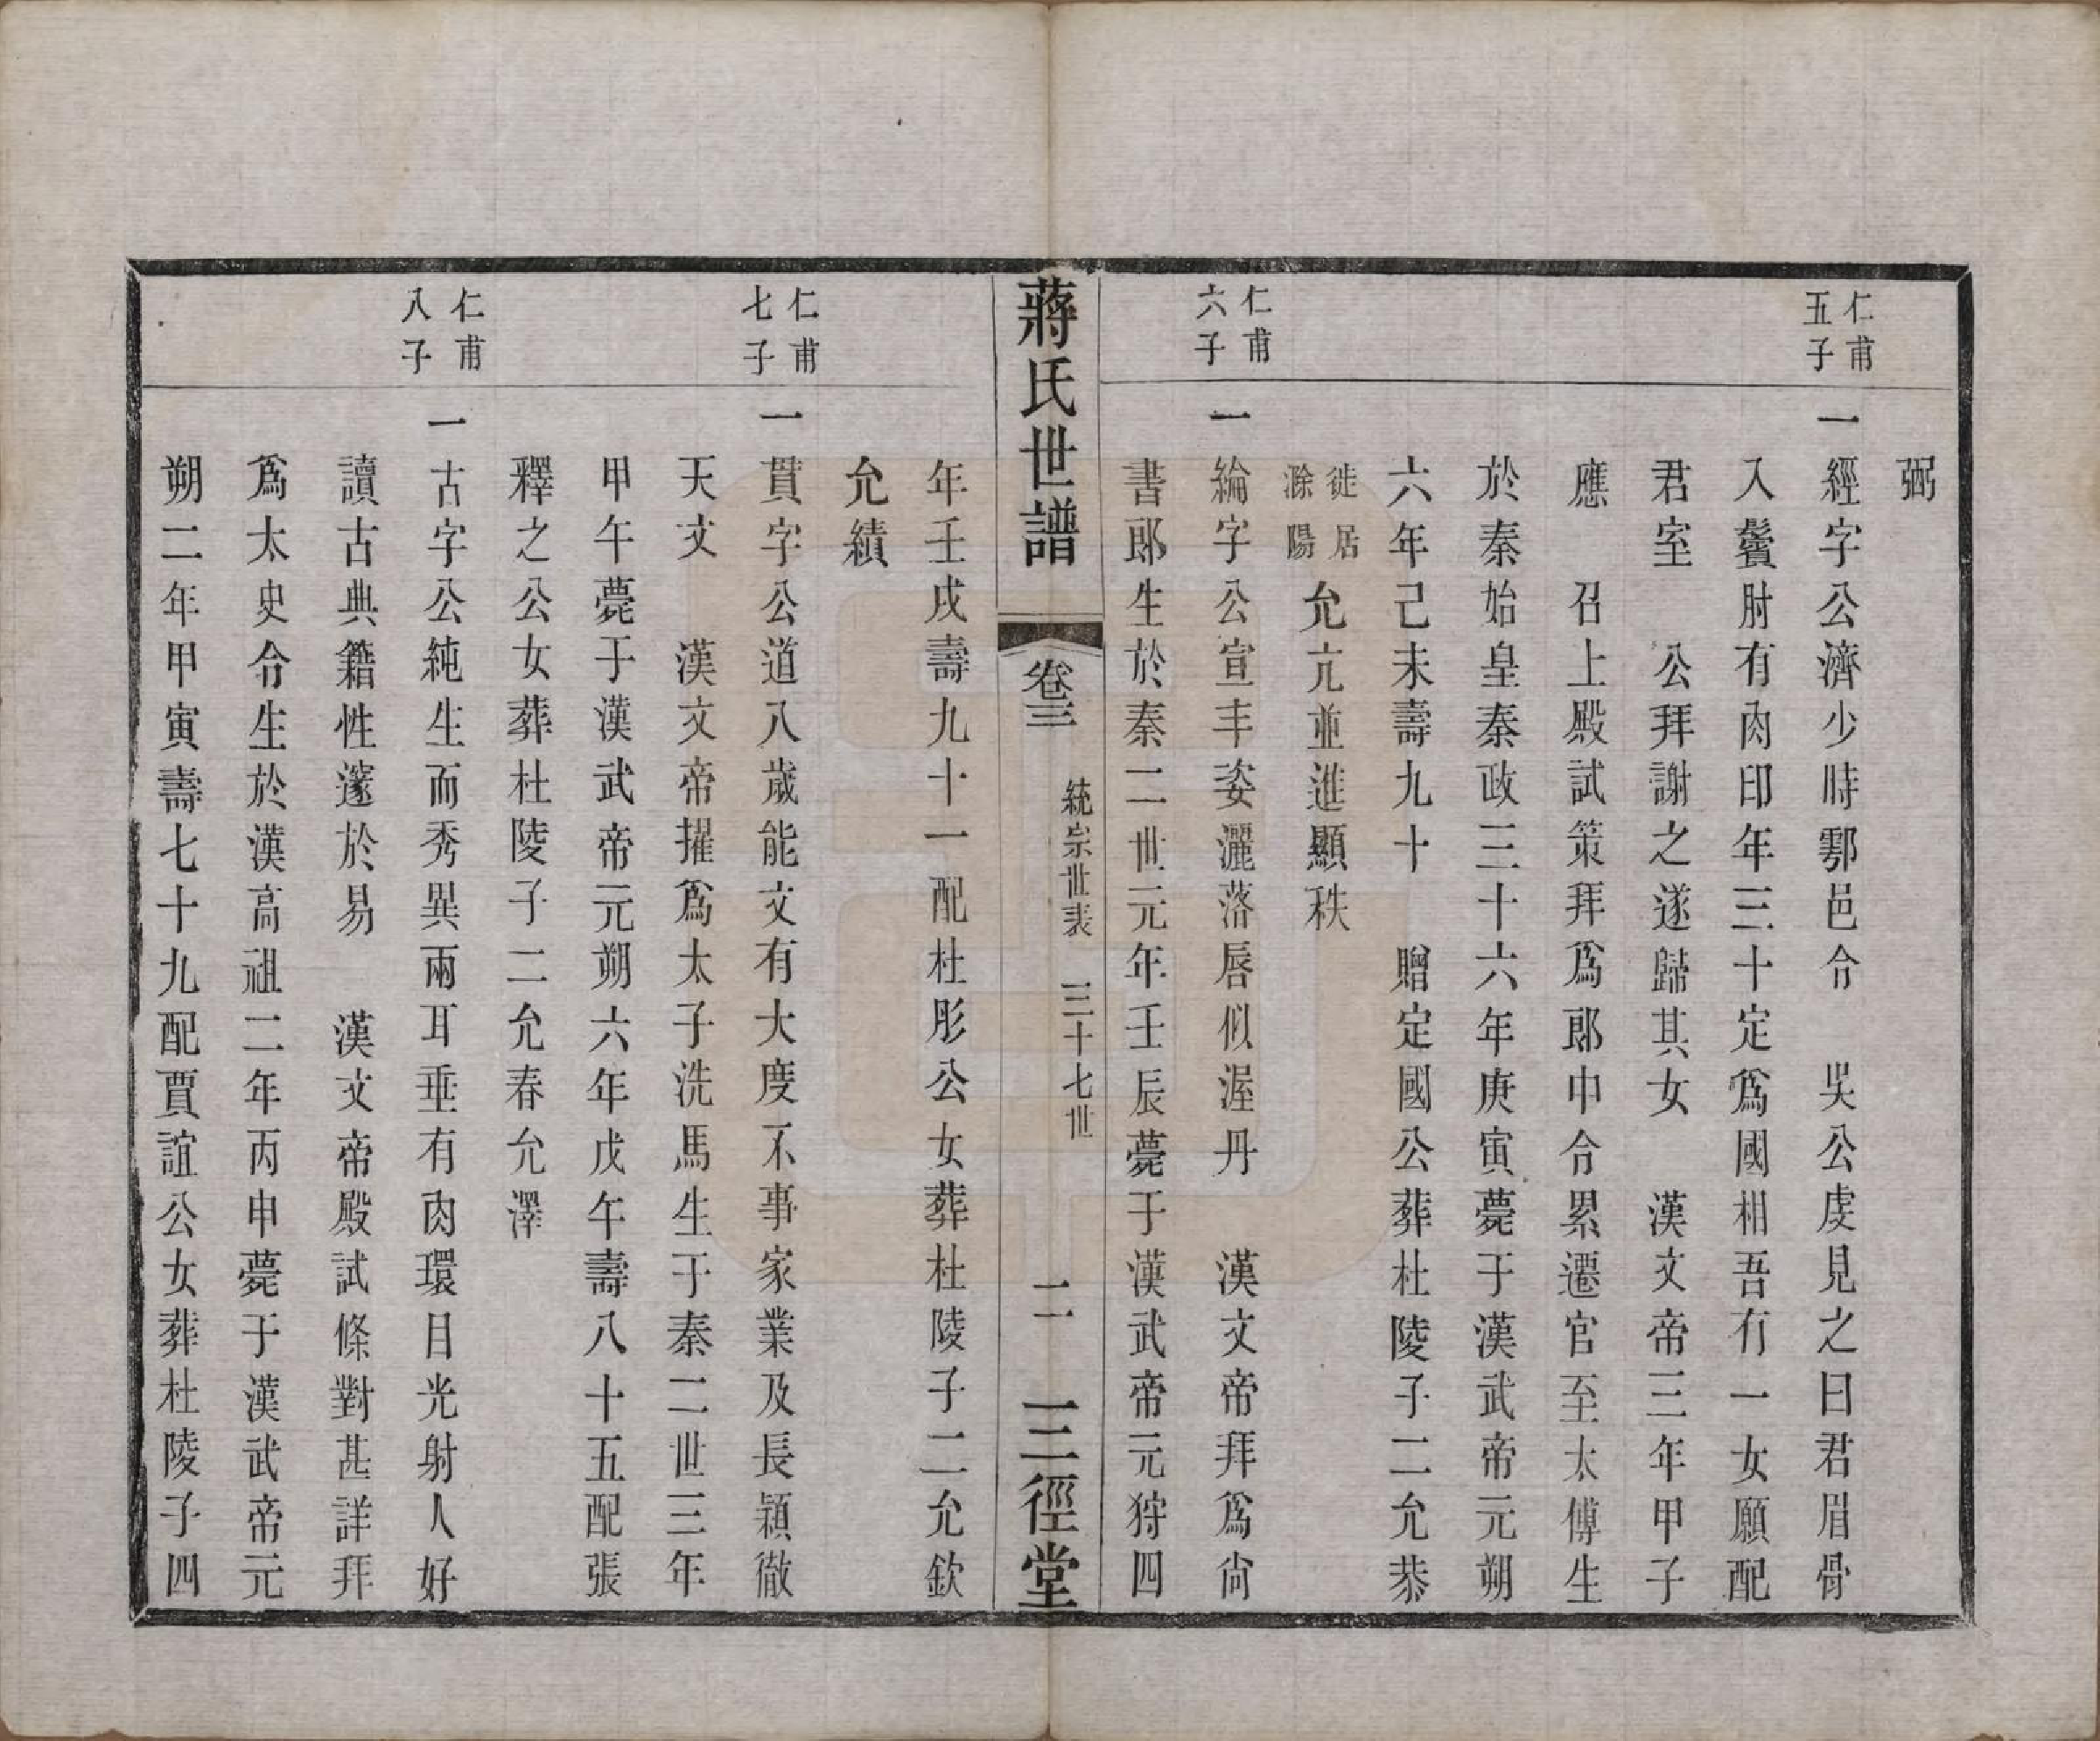 弼
仁甫
五子
一經字公濟少時鄠邑令　吳公虔見之曰君眉骨
入鬢肘有肉印年三十定爲國相吾有一女願配
君室　公拜謝之遂歸其女　漢文帝三年甲子
應　召上殿試策拜爲郎中令累遷官至太傅生
於秦始皇秦政三十六年庚寅薨于漢武帝元朔
六年己未壽九十　贈定國公葬杜陵子二允恭
徙居
滁陽
允亢並進顯秩
仁甫
六子
一綸字公宣丰姿灑落唇似渥丹　漢文帝拜爲尙
書郎生於秦二世元年壬辰薨于漢武帝元狩四
蔣氏世譜　卷三　統宗世表　三十七世　二　三徑堂
年壬戌壽九十一配杜彤公女葬杜陵子二允欽
允績
仁甫
七子
一貫字公道八歲能文有大度不事家業及長穎徹
天文　漢文帝擢爲太子洗馬生于秦二世三年
甲午薨于漢武帝元朔六年戊午壽八十五配張
釋之公女葬杜陵子二允春允澤
仁甫
八子
一古字公純生而秀異兩耳垂有肉環目光射人好
讀古典籍性邃於易　漢文帝殿試條對甚詳拜
爲太史令生於漢高祖二年丙申薨于漢武帝元
朔二年甲寅壽七十九配賈誼公女葬杜陵子四